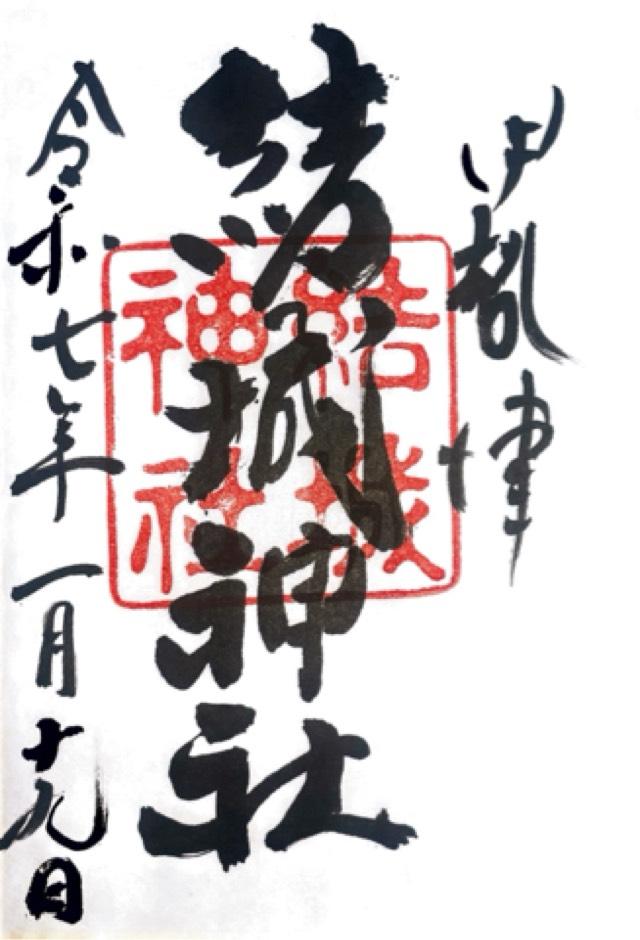 伊勢津
結城神社
結城
神社
令和七年一月十九日